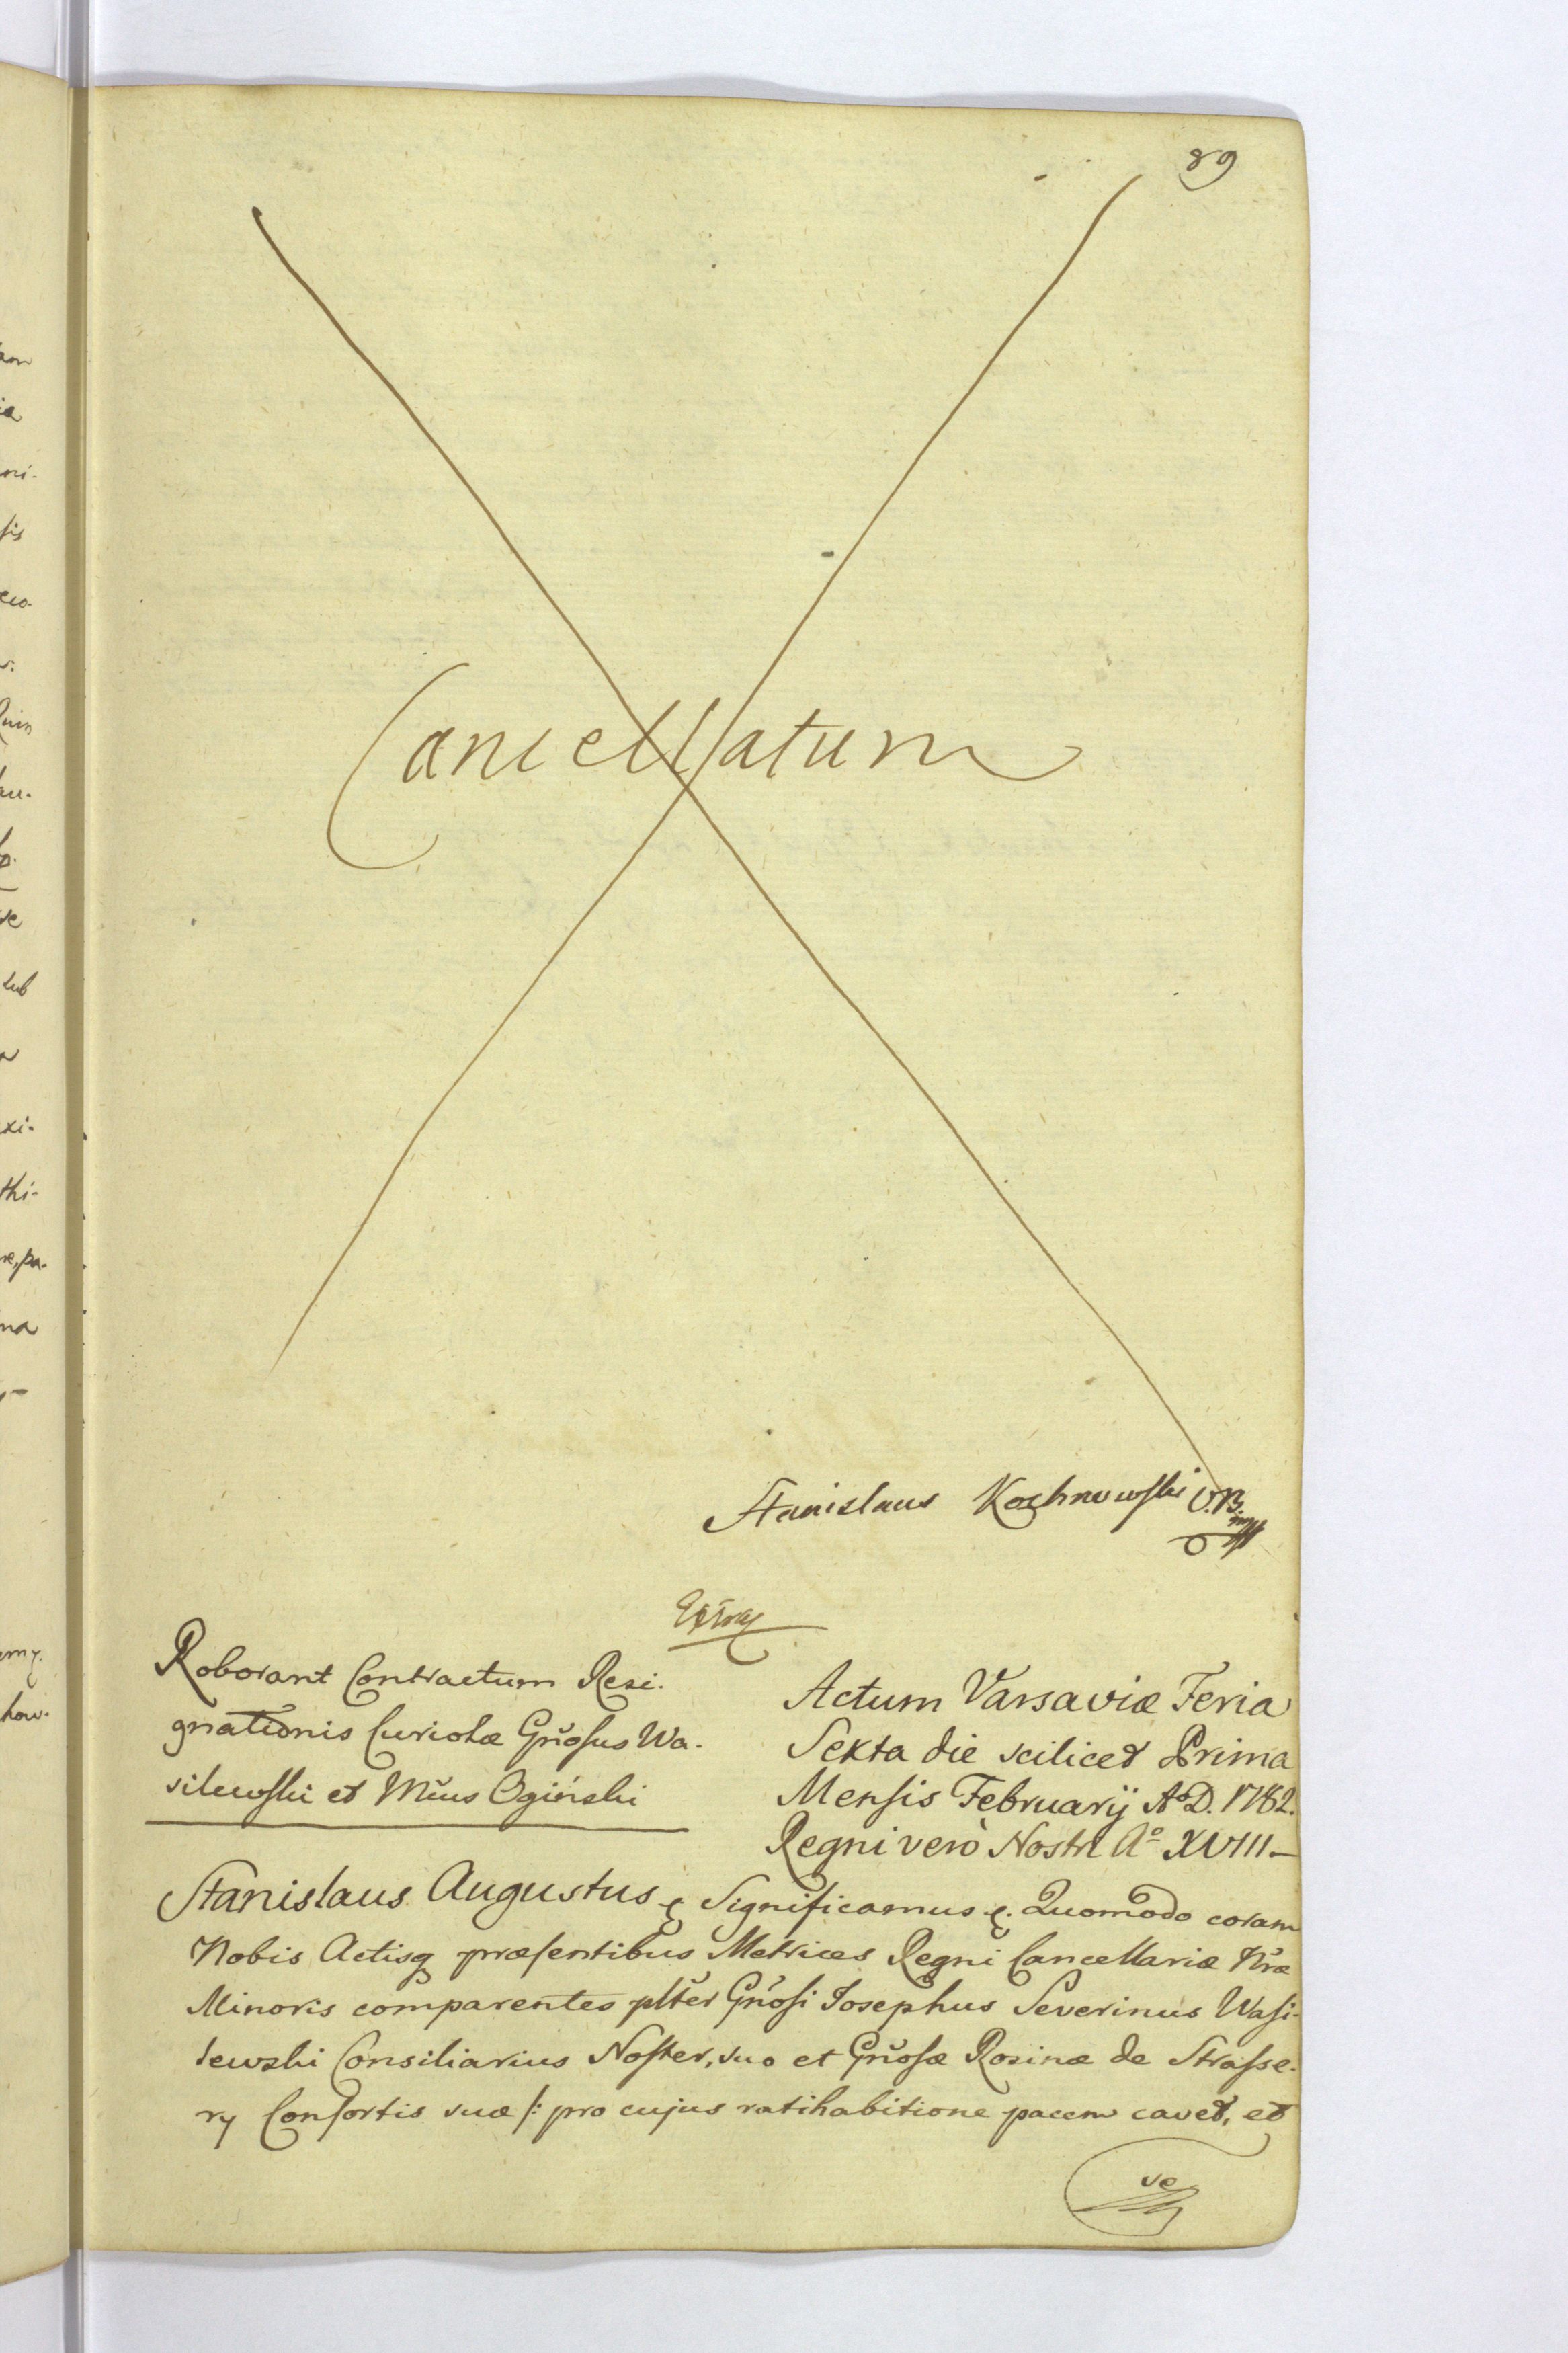 89
Cancellatum
Stanislaus Kochnowski V.B. mpp
Extrad
Roborant Contractum Resi-
gnationis Curiolæ Gñosus Wa-
silewski et Mcus Ogiński
Actum Varsaviæ Feria
Sexta die scilicet Prima
Mensis Februarÿ Aº D. 1782.
Regni verò Nostri Aº XVIII
Stanislaus Augustus & Significamus &. Quomodo coram
Nobis Actisq præsentibus Metrices Regni Cancellariæ Nræ
Minoris comparentes plter Gñosi Josephus Severinus Wasi-
lewski Consiliarius Noster, suo et Gñosæ Rosinæ de Strasse-
ry Consortis suæ /: pro cujus ratihabitione pacem cavet, et
ve